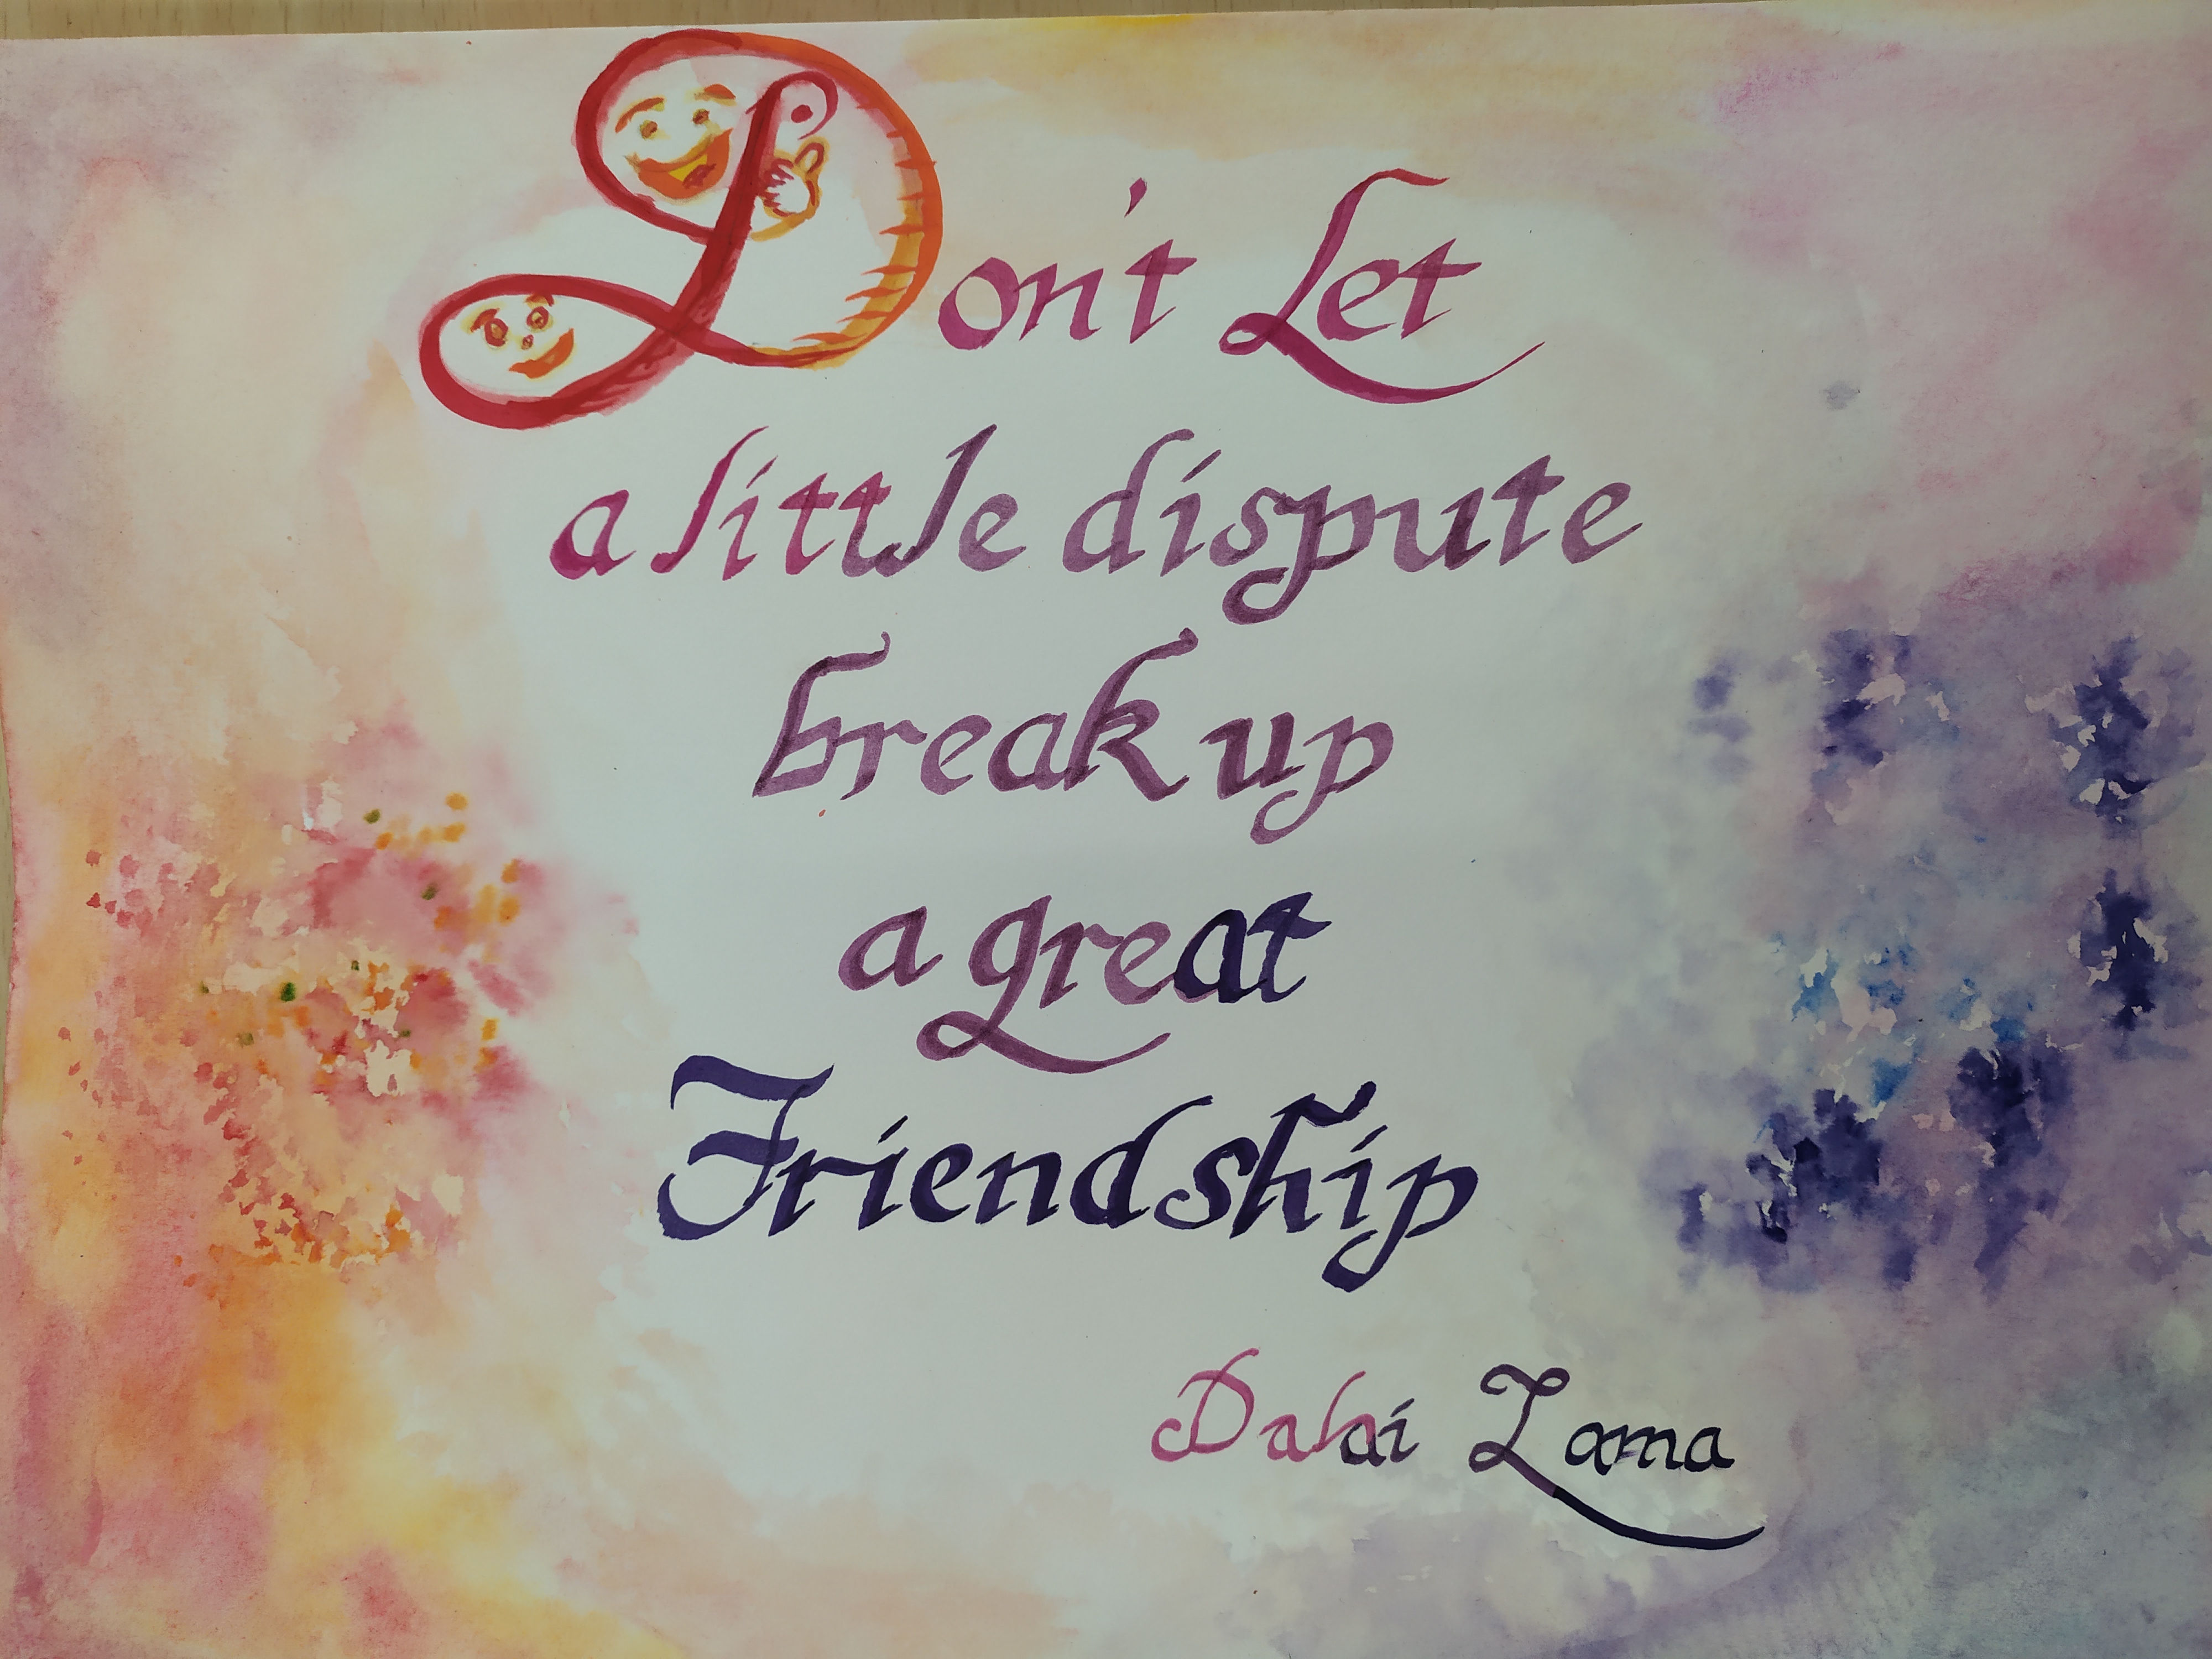 Don't Let
a little dispute
break up
a great
Friendship
Dalai Lama